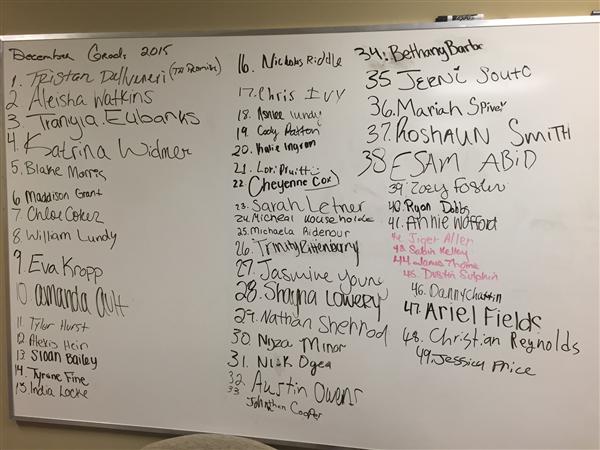 December Grads 2015
1. Tristan
2 Aleisha Watkins
3 Tranyia. Eubanks
4 Katrina Widmer
5. Blake Morris
6 Maddison Grant
7. Chloe Coker
8. William Lundy
9. Eva Kropp
10 amanda ault
11. Tyler Hurst
12 Alexis Hein
13 Sloan Bailey
14. Tyrone Fine
15. India Locke
16. Nicholas Riddle
17. Chris Ivy
18. Ashlee Lundy
19. Cody Patton
20. Katie Ingram
21. Lori Pruitt
22. Cheyenne Cox
23. Sarah Letner
24. Micheal Householder
25. Michaela Ridenour
26. Trinity Rittenberry
27. Jasmine Young
28. Shayna Lowery
29. Nathan Shehrod
30 Noza Minor
31. Nick Ogea
32. Austin Owens
33 Johnathan Cooper
34: Bethany Barbr
35 Jerni Souto
36. Mariah Spivey
37. Roshaun Smith
38 Esam Abid
39. Zoey Foster
40. Ryan Dobbs
41. Annie Wofford
42. Jiger Allen
43. Sabin Kelley
44. James Thorne
45. Dustin Sulphin
46. Danny Chattin
47. Ariel Fields
48. Christian Reynolds
49. Jessica Price